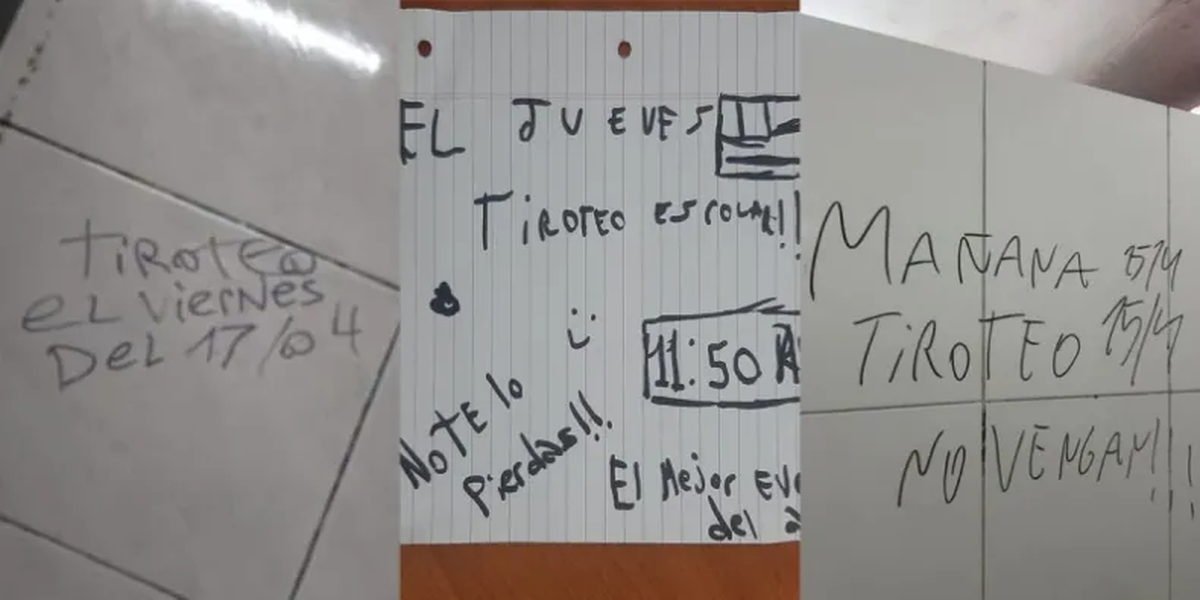 TiROTEO
EL VIERNES
DEL 17/04
EL JUEVES
TiROTEO ESCOLAR!!
:)
11:50 A
NO TE lo
pierdas!!
El Mejor
del
MAÑANA 15/4
TiROTEO 15/4
NO VENGAN!!